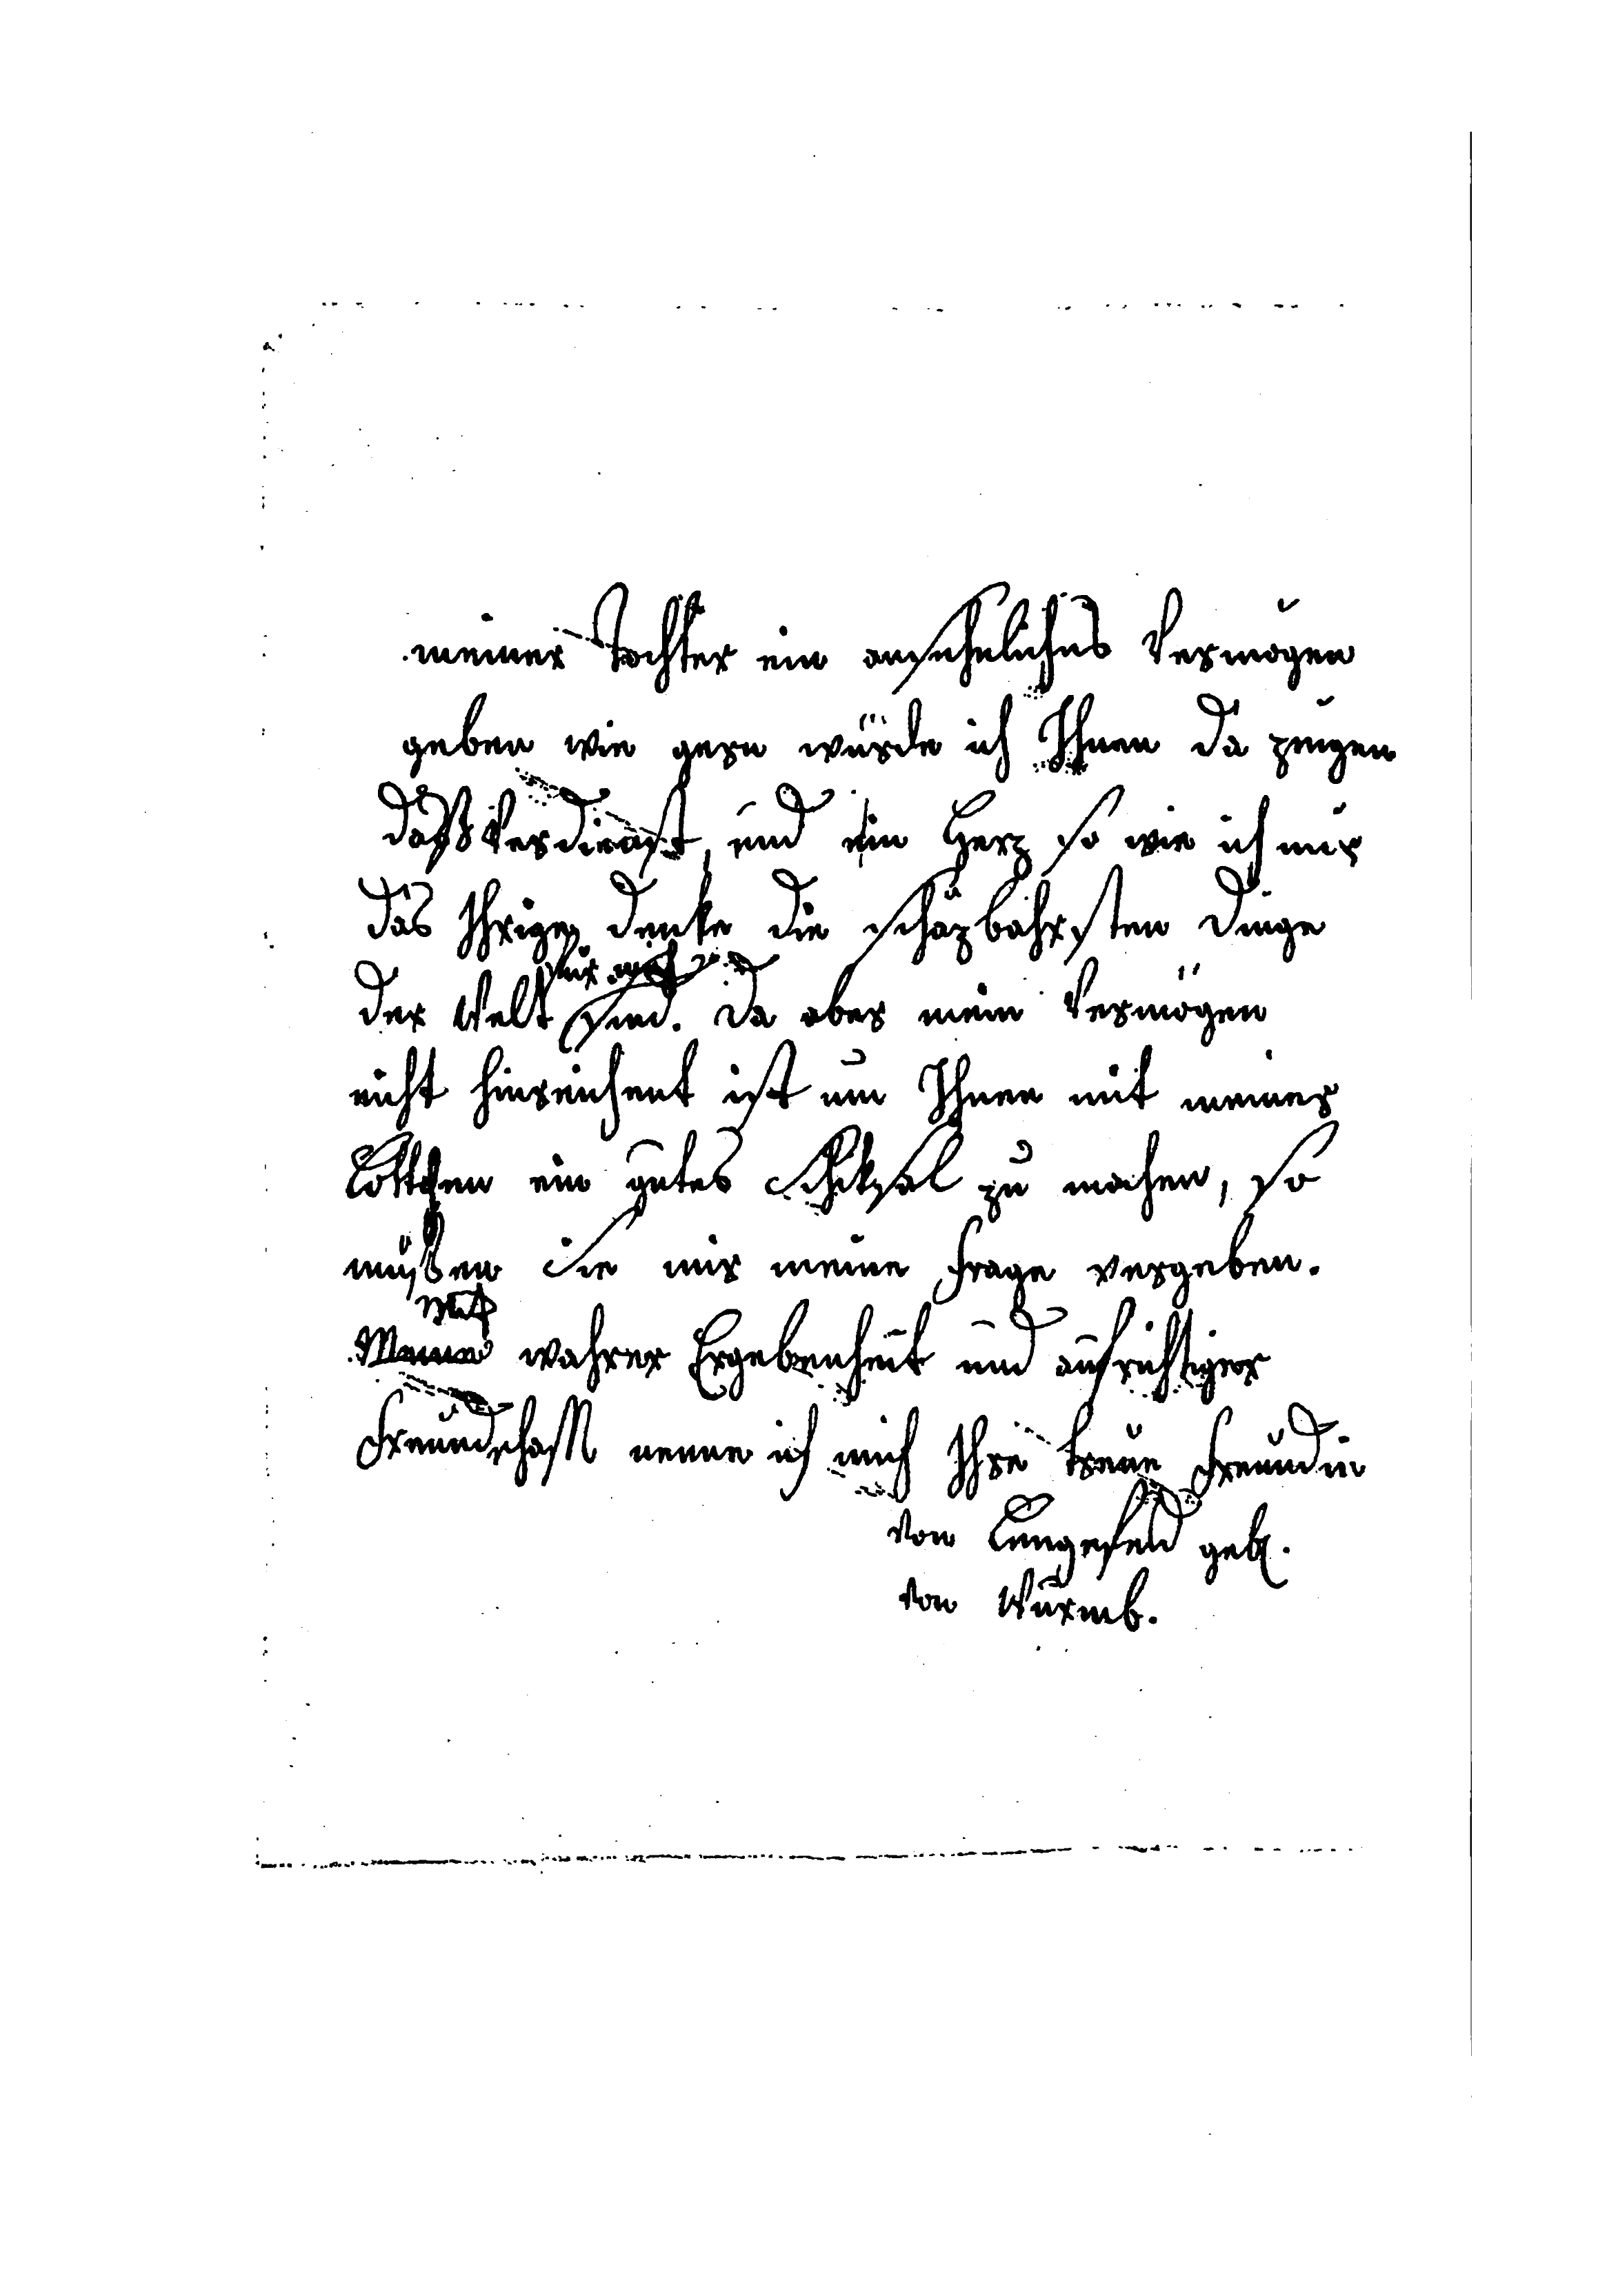 meiner Tochter ein ansehnliches Vermögen
geben wie gern würde ich Ihnen da zeugen
daß Verdienst, und ein Herz so wie ich mir
das Ihrige denke die schäzbahrsten Dinge
für mich
der Welt sind. Da aber mein Vermögen
nicht hinreichent ist um Ihnen mit meiner
Lottchen ein gutes Schiksal zu machen, so
müßen Sie mir meine Frage vergeben.
Mit
wahrer Ergebenheit und aufrichtiger
Freundschafft nenne ich mich Ihre treue Freundin
von Lengefeld geb.
von Wurmb.